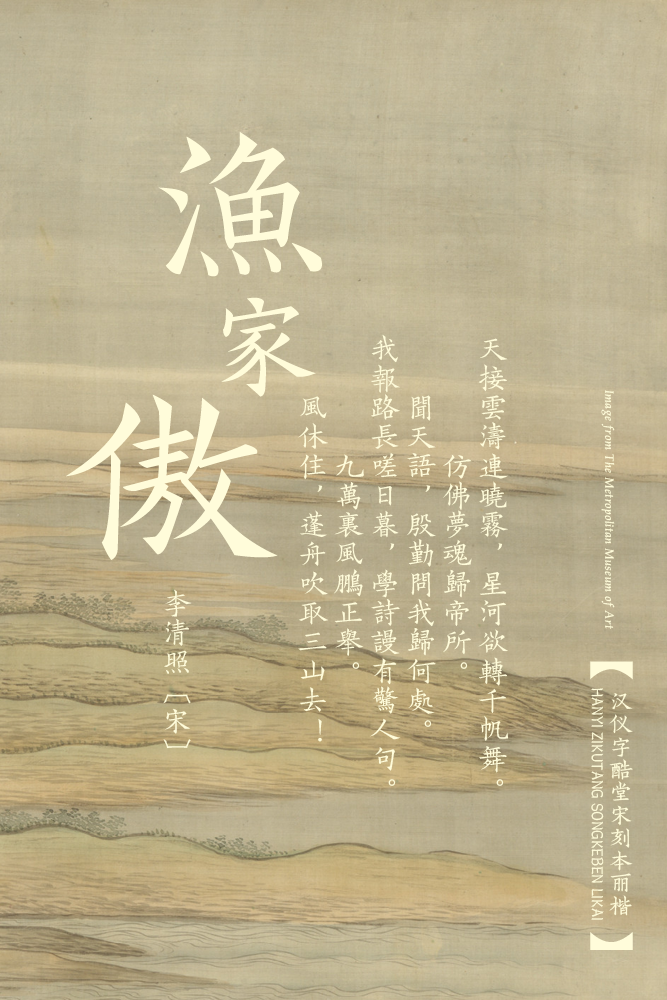 漁家傲
天接雲濤連曉霧，星河欲轉千帆舞。
仿佛夢魂歸帝所。
聞天語，殷勤問我歸何處。
我報路長嗟日暮，學詩謾有驚人句。
九萬裏風鵬正舉。
風休住，蓬舟吹取三山去！
李清照［宋］
Image from The Metropolitan Museum of Art
【汉仪字酷堂宋刻本丽楷
HANYI ZIKUTANG SONGKEBEN LIKAI】